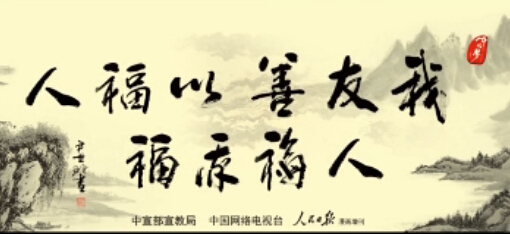 我友善以福人
人福亦福
中国梦
中宣部宣教局 中国网络电视台 人民日报